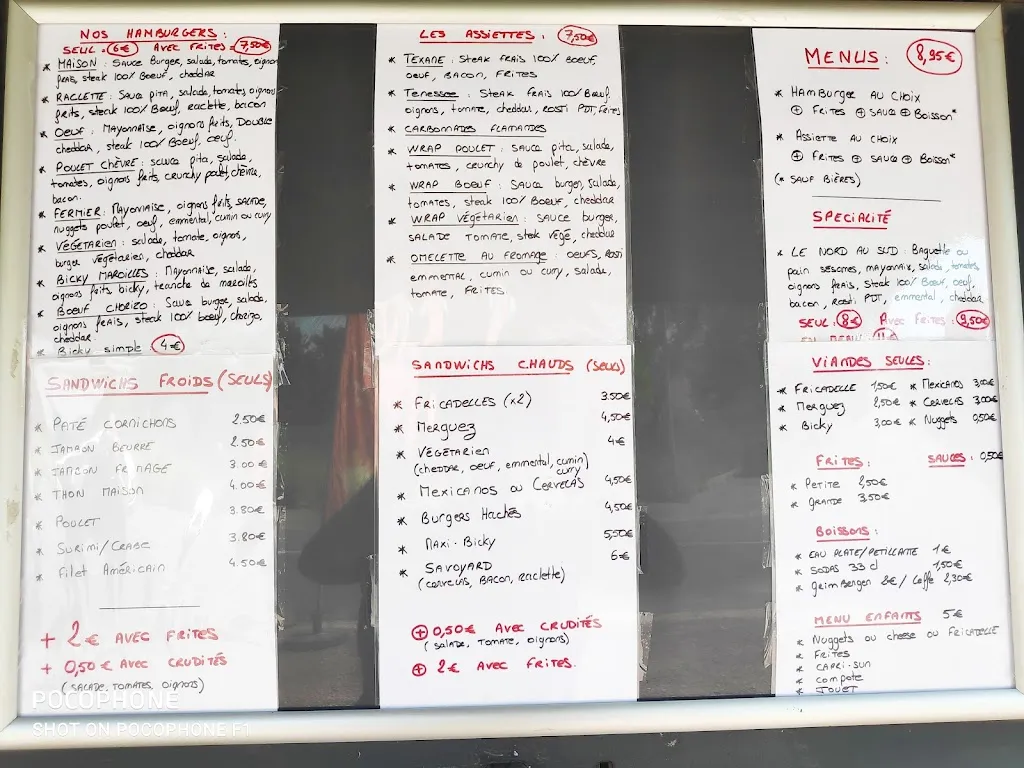 NOS HAMBURGERS :
SEUL = 6€ AVEC FRITES = 7,50€
* MAISON : Sauce Burger, salade, tomates, oignons
frais, steak 100% Boeuf, cheddar
* RACLETTE : Sauce pita, salade, tomates, oignons
frits, steak 100% Boeuf, raclette, bacon
* OEUF : Mayonnaise, oignons frits, DOUBLE
cheddar, steak 100% Boeuf, oeuf.
* POULET CHÈVRE : sauce pita, salade,
tomates, oignons frits, crunchy poulet, chèvre,
bacon.
* FERMIER : Mayonnaise, oignons frits, salade,
nuggets poulet, oeuf, emmental, cumin ou curry
* VÉGÉTARIEN : salade, tomate, oignons,
burger végétarien, cheddar
* BICKY MAROILLES : Mayonnaise, salade,
oignons frits bicky, tranche de maroilles
* BOEUF CHORIZO : Sauce burger, salade,
oignons frais, steak 100% boeuf, chorizo,
cheddar.
* Bicky simple 4€
SANDWICHS FROIDS (SEULS)
* PATÉ CORNICHONS 2.50€
* JAMBON BEURRE 2.50€
* JAMBON FROMAGE 3.00€
* THON MAISON 4.00€
* POULET 3.80€
* SURIMI/CRABE 3.80€
* Filet Américain 4.50€
+ 2€ AVEC FRITES
+ 0,50€ AVEC CRUDITÉS
(SALADE, TOMATES, OIGNONS)
LES ASSIETTES : 7,50€
* TEXANE : STEAK FRAIS 100% BOEUF,
OEUF, BACON, FRITES
* TENESSEE : STEAK FRAIS 100% BOEUF,
oignons, tomate, cheddar, ROSTI PDT, FRITES
* CARBONNADES FLAMANDES
* WRAP POULET : SAUCE pita, salade,
tomates, crunchy de poulet, chèvre
* WRAP BOEUF : SAUCE burger, salade,
tomates, steak 100% BOEUF, cheddar
* WRAP VÉGÉTARIEN : SAUCE burger,
SALADE TOMATE, steak végé, cheddar
* OMELETTE AU FROMAGE : OEUFS, ROSTI
emmental, cumin ou curry, salade,
tomate, FRITES.
SANDWICHS CHAUDS (SEULS)
* FRICADELLES (x2) 3.50€
* Merguez 4,50€
* VÉGÉTARIEN 4€
(cheddar, oeuf, emmental, cumin)
curry
* MEXICANOS OU CERVELAS 4,50€
* Burgers Hachés 4,50€
* MAXI-Bicky 5,50€
* SAVOYARD 6€
(cervelas, Bacon, raclette)
+ 0,50€ AVEC CRUDITÉS
(SALADE, TOMATE, OIGNONS)
+ 2€ AVEC FRITES.
MENUS : 8,95€
* HAMBURGER AU CHOIX
+ FRITES + SAUCE + BOISSON*
* ASSIETTE AU CHOIX
+ FRITES + SAUCE + BOISSON*
(* SAUF BIÈRES)
SPECIALITÉ
* LE NORD AU SUD : Baguette ou
pain sésames, mayonnaise, salade, tomates,
oignons frais, steak 100% Boeuf, oeuf,
bacon, Rosti PDT, emmental, cheddar
SEUL : 8€ AVEC FRITES : 9,50€
EN MENU 11€
VIANDES SEULES :
* FRICADELLE 1,50€ * MEXICANOS 3,00€
* Merguez 2,50€ * CERVELAS 3,00€
* Bicky 3,00€ * Nuggets 0,50€
FRITES : SAUCES : 0,50€
* PETITE 2,50€
* GRANDE 3.50€
BOISSONS :
* EAU PLATE/PETILLANTE 1€
* SODAS 33 cl 1,50€
* Grimbergen 2€/ Leffe 2,30€
MENU ENFANTS 5€
* Nuggets ou cheese ou FRICADELLE
* FRITES
* CAPRI-SUN
* compote
* JOUET
POCOPHONE
SHOT ON POCOPHONE F1